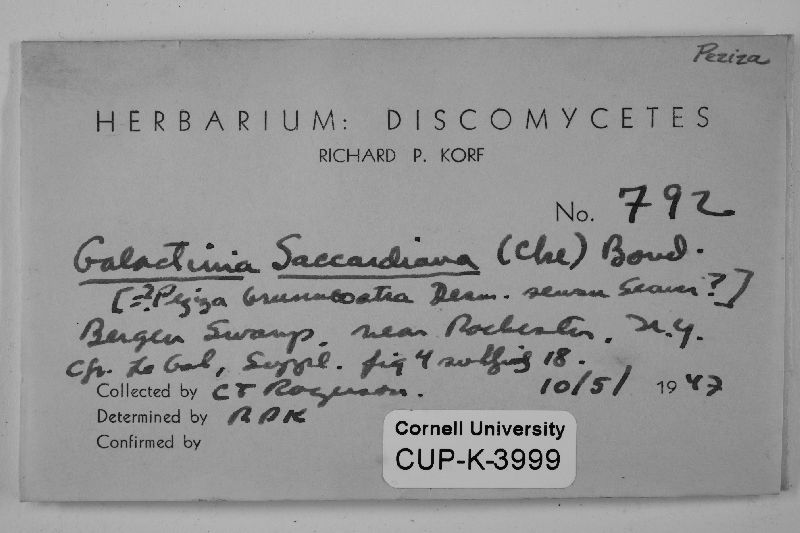 Peziza
HERBARIUM: DISCOMYCETES
RICHARD P. KORF
No. 792
Galactinia Saccardiana (Cke) Boud.
[=? Peziza brunneoatra Desm. sensu Seaver?]
Bergen Swamp, near Rochester, N.Y.
Cfr. Le Gal, Suppl. fig 4 fig 18.
Collected by CT Rogerson. 10/5/ 1947
Determined by RPK
Confirmed by
Cornell University
CUP-K-3999